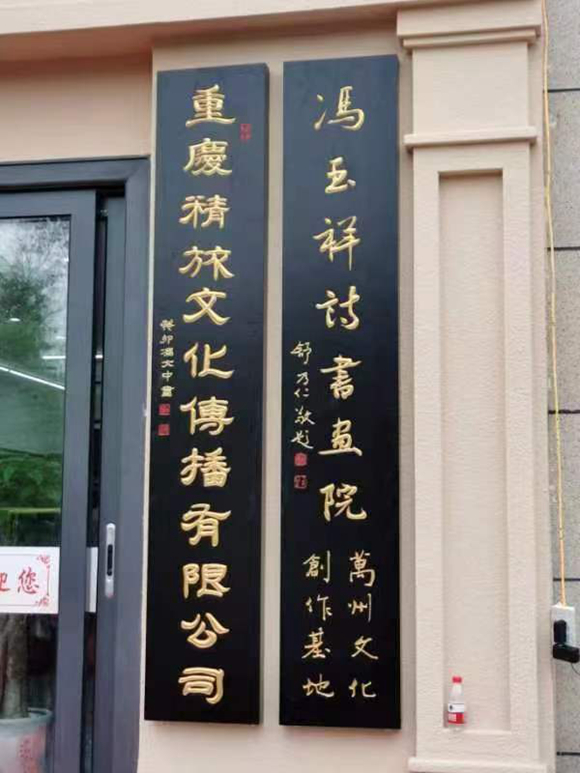 冯玉祥詩書画院
萬州文化
創作基地
舒乃仁敬题
重慶精旅文化傳播有限公司
癸卯馮文中書
迎您